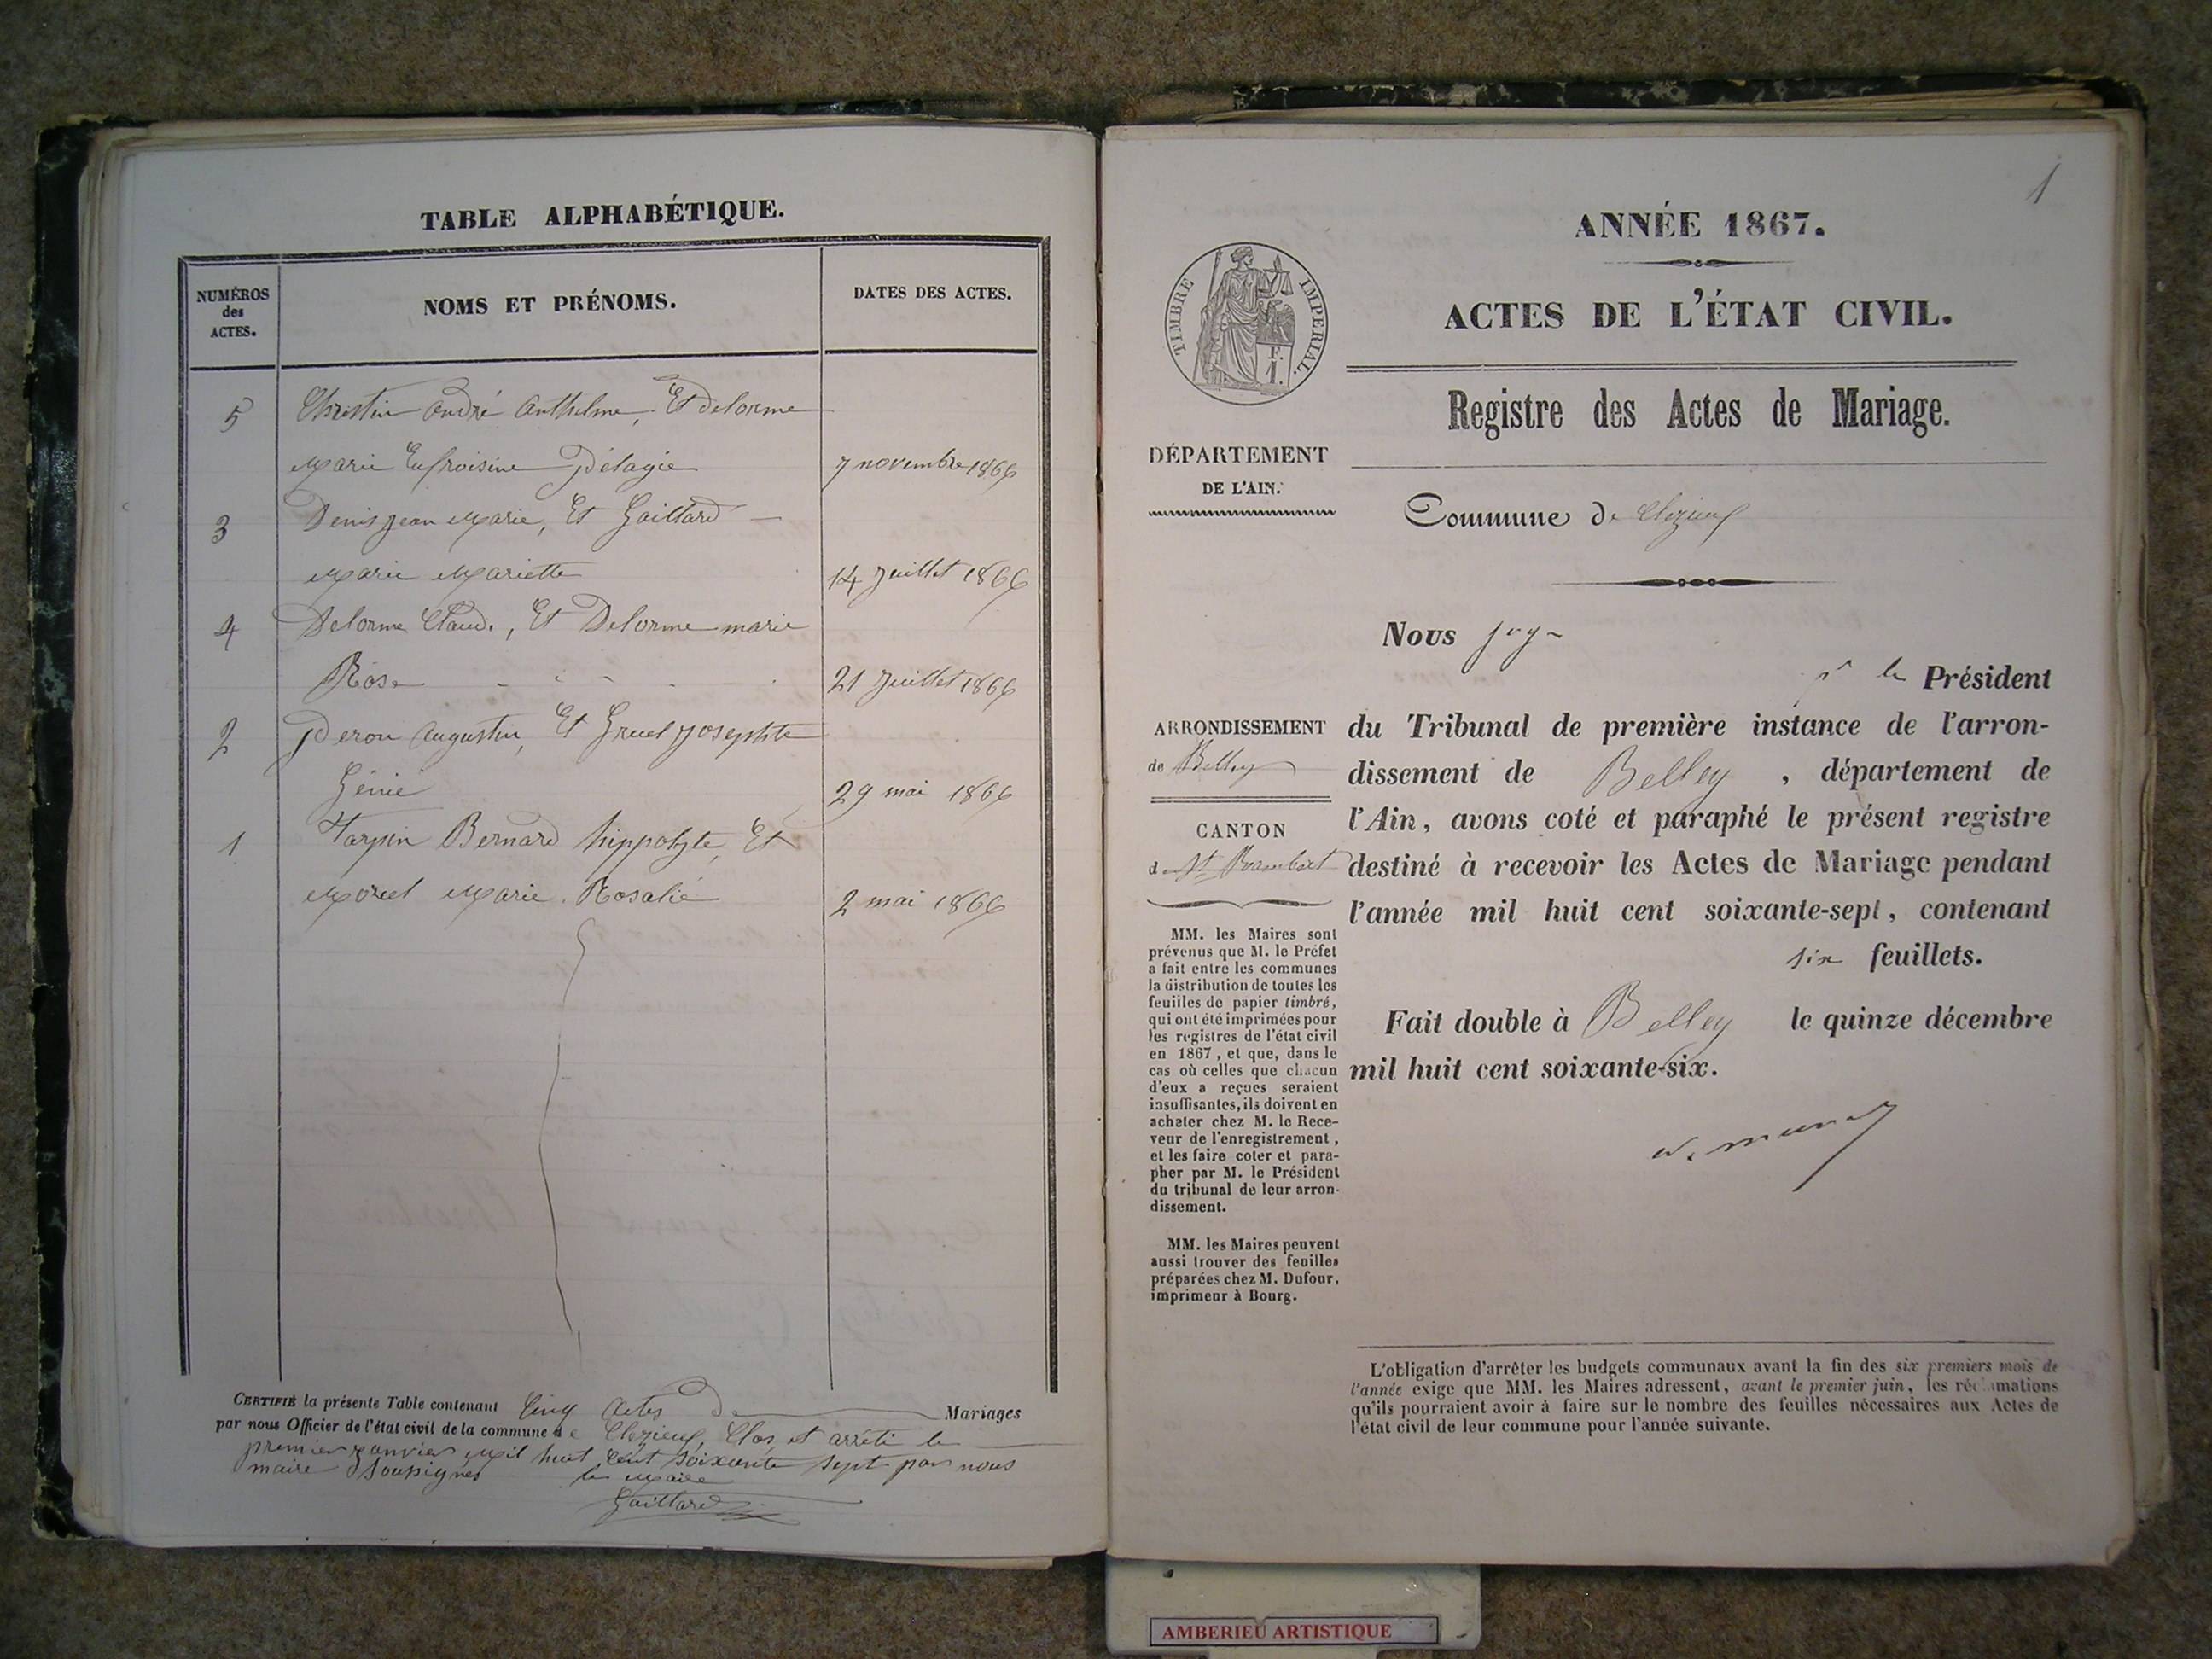 TABLE ALPHABÉTIQUE.
NUMÉROS
des
ACTES.
NOMS ET PRÉNOMS.
DATES DES ACTES.
5 Christin André Anthelme, Et Delorme
Marie Eufroisine Pélagie 7 novembre 1866
3 Denis Jean Marie, Et Gaillard
Marie Mariette 14 Juillet 1866
4 Delorme Claude, Et Delorme marie
Rose 21 Juillet 1866
2 Peron Augustin, Et Gruel Josephte
Génie 29 mai 1866
1 Tarpin Bernard hippolyte, Et
Morel Marie Rosalie 2 mai 1866
CERTIFIÉ la présente Table contenant Cinq Actes De Mariages
par nous Officier de l'état civil de la commune de Clezieu, Clos et arrêté le
premier Janvier Mil huit Cent Soixante Sept par nous
maire Soussigné
le Maire
Gaillard
1
ANNÉE 1867.
ACTES DE L'ÉTAT CIVIL.
Registre des Actes de Mariage.
TIMBRE IMPERIAL.
F.
1.
DÉPARTEMENT
DE L'AIN.
Commune de Clezieu
Nous
le Président
du Tribunal de première instance de l'arron-
dissement de Belley, département de
l'Ain, avons coté et paraphé le présent registre
destiné à recevoir les Actes de Mariage pendant
l'année mil huit cent soixante-sept, contenant
six feuillets.
Fait double à Belley le quinze décembre
mil huit cent soixante-six.
ARRONDISSEMENT
de Belley
CANTON
de St Rambert
MM. les Maires sont
prévenus que M. le Préfet
a fait entre les communes
la distribution de toutes les
feuilles de papier timbré,
qui ont été imprimées pour
les registres de l'état civil
en 1867, et que, dans le
cas où celles que chacun
d'eux a reçues seraient
insuffisantes, ils doivent en
acheter chez M. le Rece-
veur de l'enregistrement,
et les faire coter et para-
pher par M. le Président
du tribunal de leur arron-
dissement.
MM. les Maires peuvent
aussi trouver des feuilles
préparées chez M. Dufour,
imprimeur à Bourg.
L'obligation d'arrêter les budgets communaux avant la fin des six premiers mois de
l'année exige que MM. les Maires adressent, avant le premier juin, les réclamations
qu'ils pourraient avoir à faire sur le nombre des feuilles nécessaires aux Actes de
l'état civil de leur commune pour l'année suivante.
AMBERIEU ARTISTIQUE